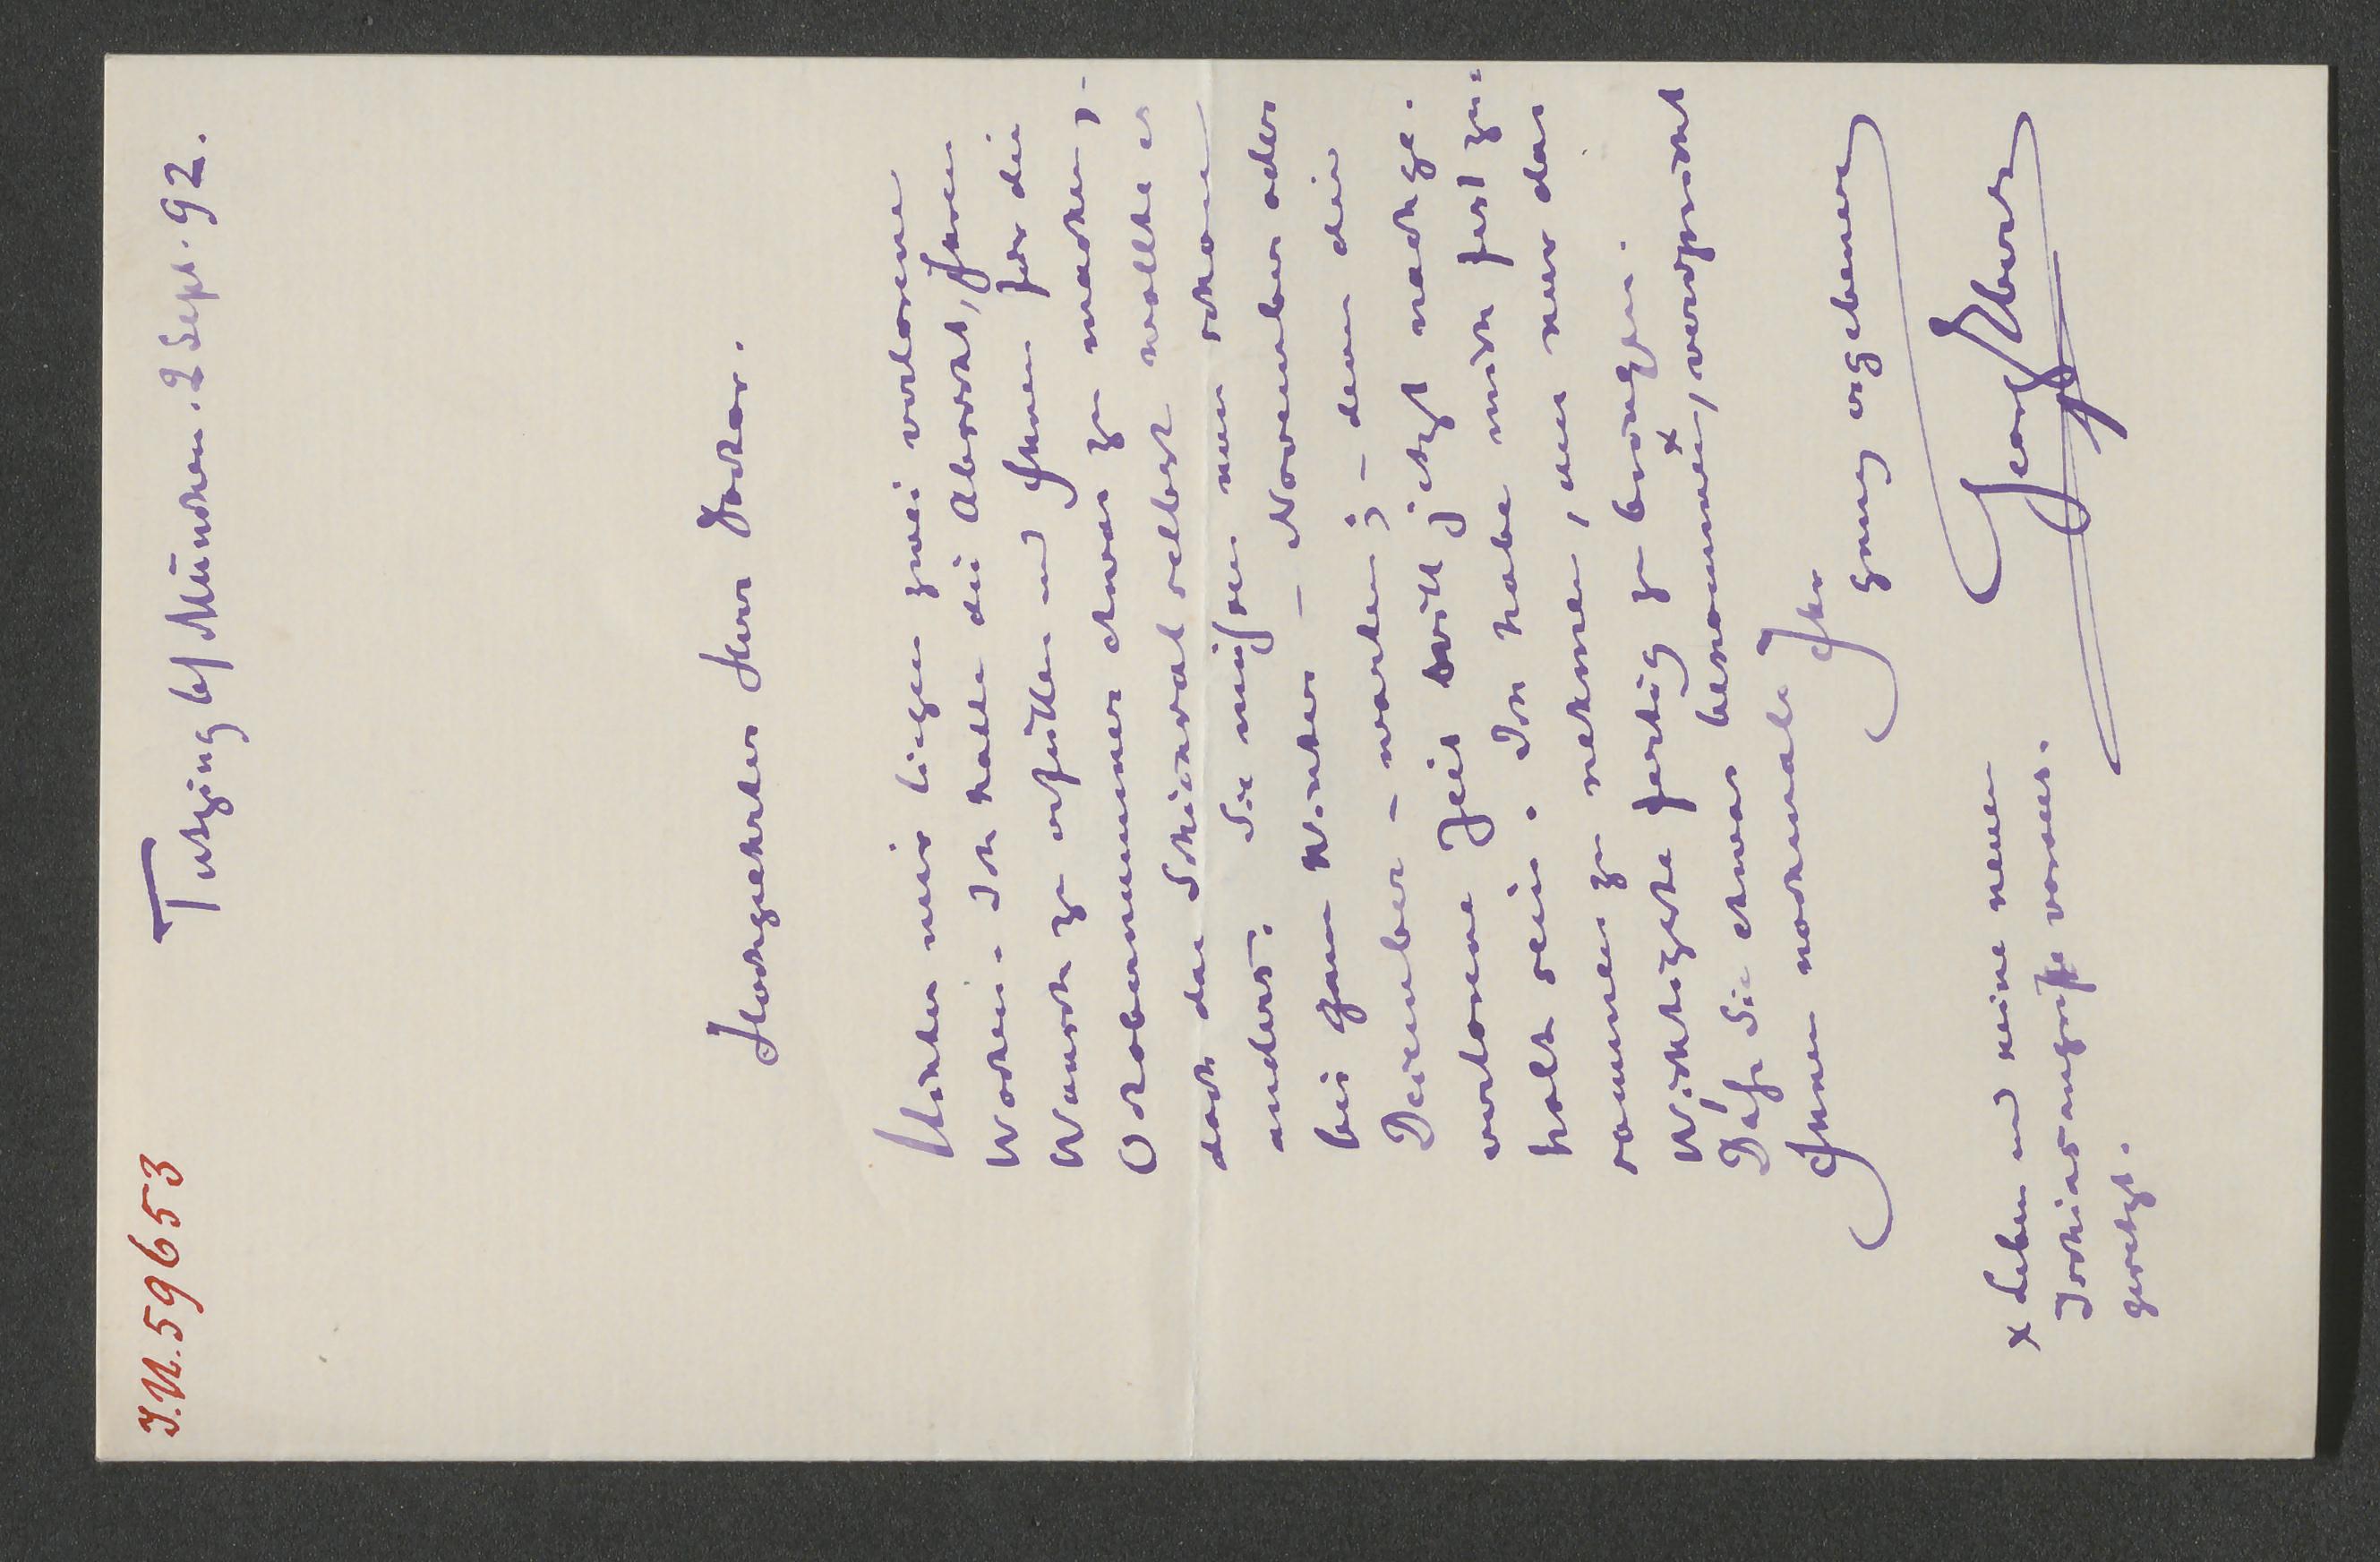 I.N. 59653
Tutzing b/ München. 2 Sept. 92.
Hochgeehrter Herr Doctor.
Hinter mir liegen zwei verlorene
Wochen. Ich hatte die Absicht, Ihren
Wunsch zu erfüllen und Ihnen für die
Octobernummer etwas zu machen, -
doch das Schicksal selbst wollte es
anders. Sie müssen nun schon
bis zum Winter - November oder
December - warten; - denn die
verlorene Zeit will jetzt nachge-
holt sein. Ich habe mich fest zu-
sammen zu nehmen, um nur das
Wichtigste fertig zu bringen.
Daß Sie etwas bekommen ×, verspricht
Ihnen nochmals Ihr
ganz ergebener
Georg Ebers
× Leben und keine neuen
Ischiasangriffe voraus-
gesetzt.